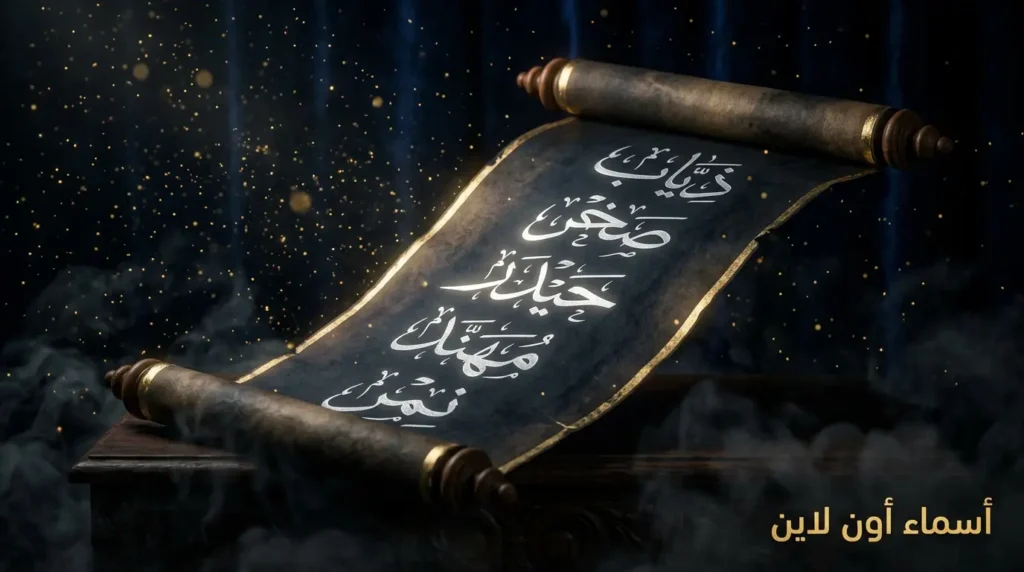 ذياب
صخر
حيدر
مهند
نمر
أسماء أون لاين